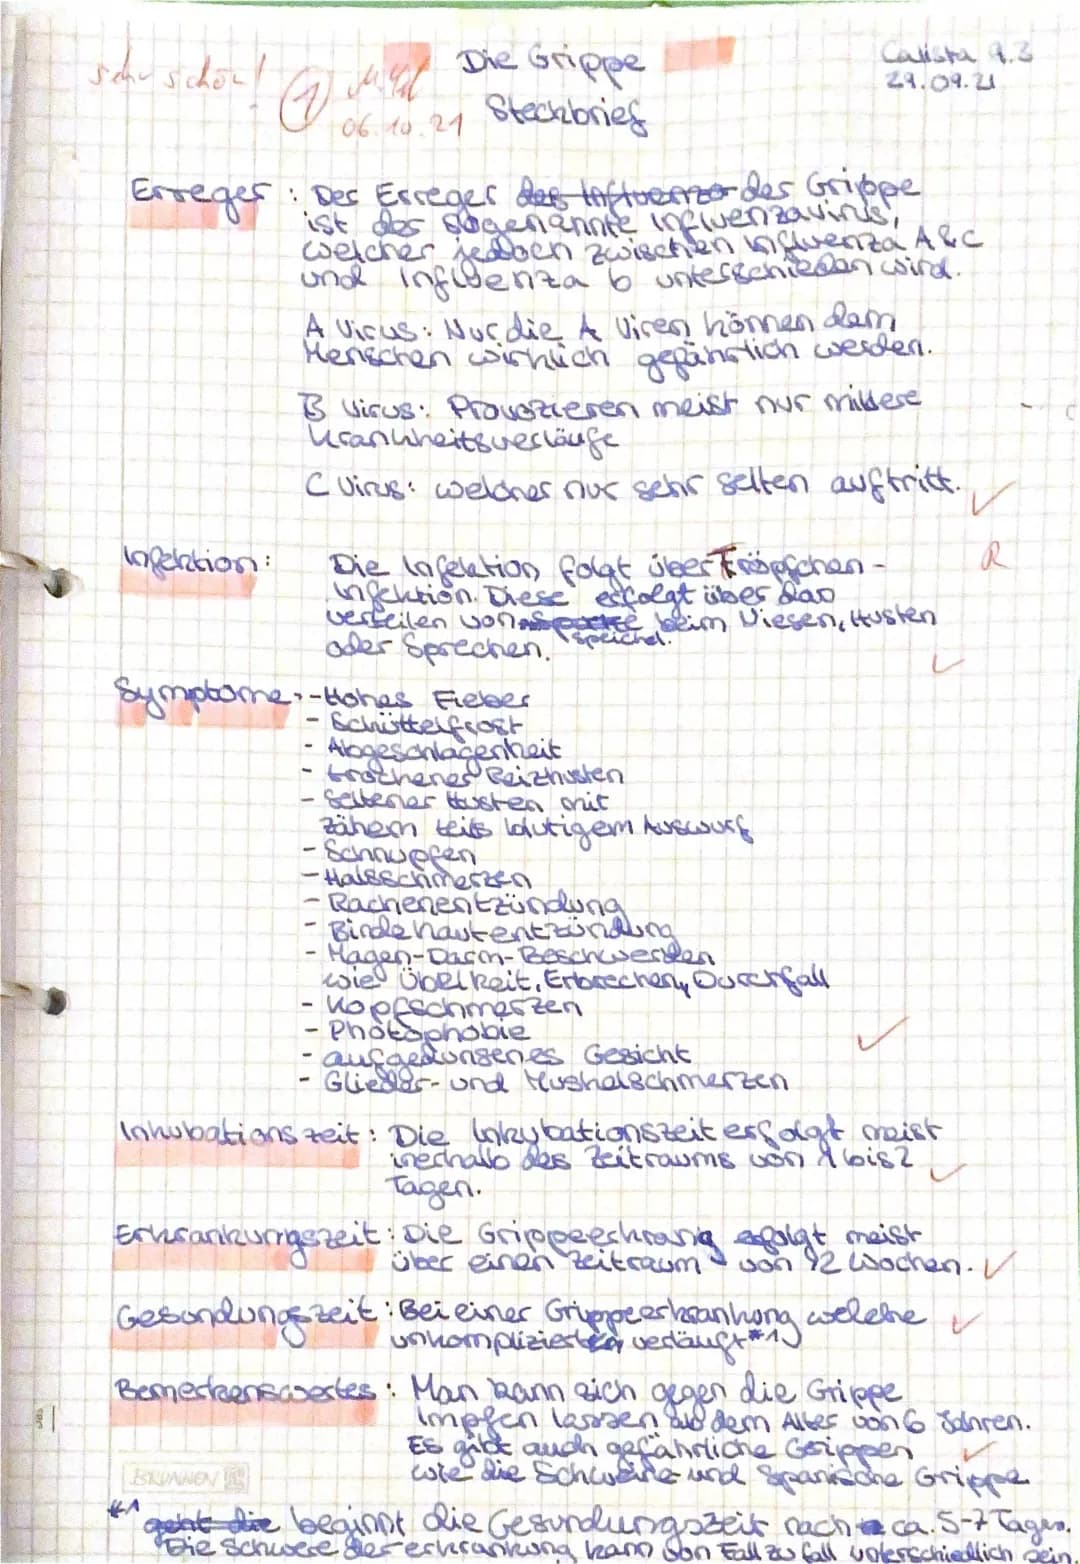 Die Grippe
Steckbrief
Calista 9.3
29.09.21
sehr schön!
1
06.10.21
Erreger : Der Erreger der Influenza der Grippe
ist das sogenannte Influenzavirus,
welcher jedoch zwischen Influenza A & C
und Influenza b unterschieden wird.
A Virus: Nur die A Viren können dem
Menschen wirklich gefährlich werden.
B Virus: Provozieren meist nur mildere
Krankheitsverläufe
C Virus: welcher nur sehr selten auftritt.
Infektion: Die Infektion folgt über Tröpfchen-
R
infektion. Diese erfolgt über das
verteilen von beim Niesen, Husten
speichel.
oder Sprechen.
Symptome: - Hohes Fieber
- Schüttelfrost
- Abgeschlagenheit
- trockener Reizhusten
- Seltener Husten mit
zähem teils blutigem Auswurf
- Schnupfen
- Halsschmerzen
- Rachenentzündung
- Bindehautentzündung
- Magen-Darm-Beschwerden
wie Übelkeit, Erbrechen, Durchfall
- Kopfschmerzen
- Photophobie
- aufgedunsenes Gesicht
- Glieder- und Muskelschmerzen
Inkubationszeit: Die Inkubationszeit erfolgt meist
inerhalb des Zeitraums von 1 bis 2
Tagen.
Erkrankungszeit: Die Grippeerkrang erfolgt meist
über einen Zeitraum von 12 Wochen.
Gesundungszeit: Bei einer Grippeerkrankung welche
unkompliziert verläuft *1
Bemerkenswertes: Man kann sich gegen die Grippe
Impfen lassen ab dem Alter von 6 Jahren.
Es gibt auch gefährliche Grippen
wie die Schweine und Spanische Grippe
BRUNNEN
*1 geht die beginnt die Gesundungszeit nach ca. 5-7 Tagen.
Die Schwere der erkrankung kann von Fall zu fall unterschiedlich sein